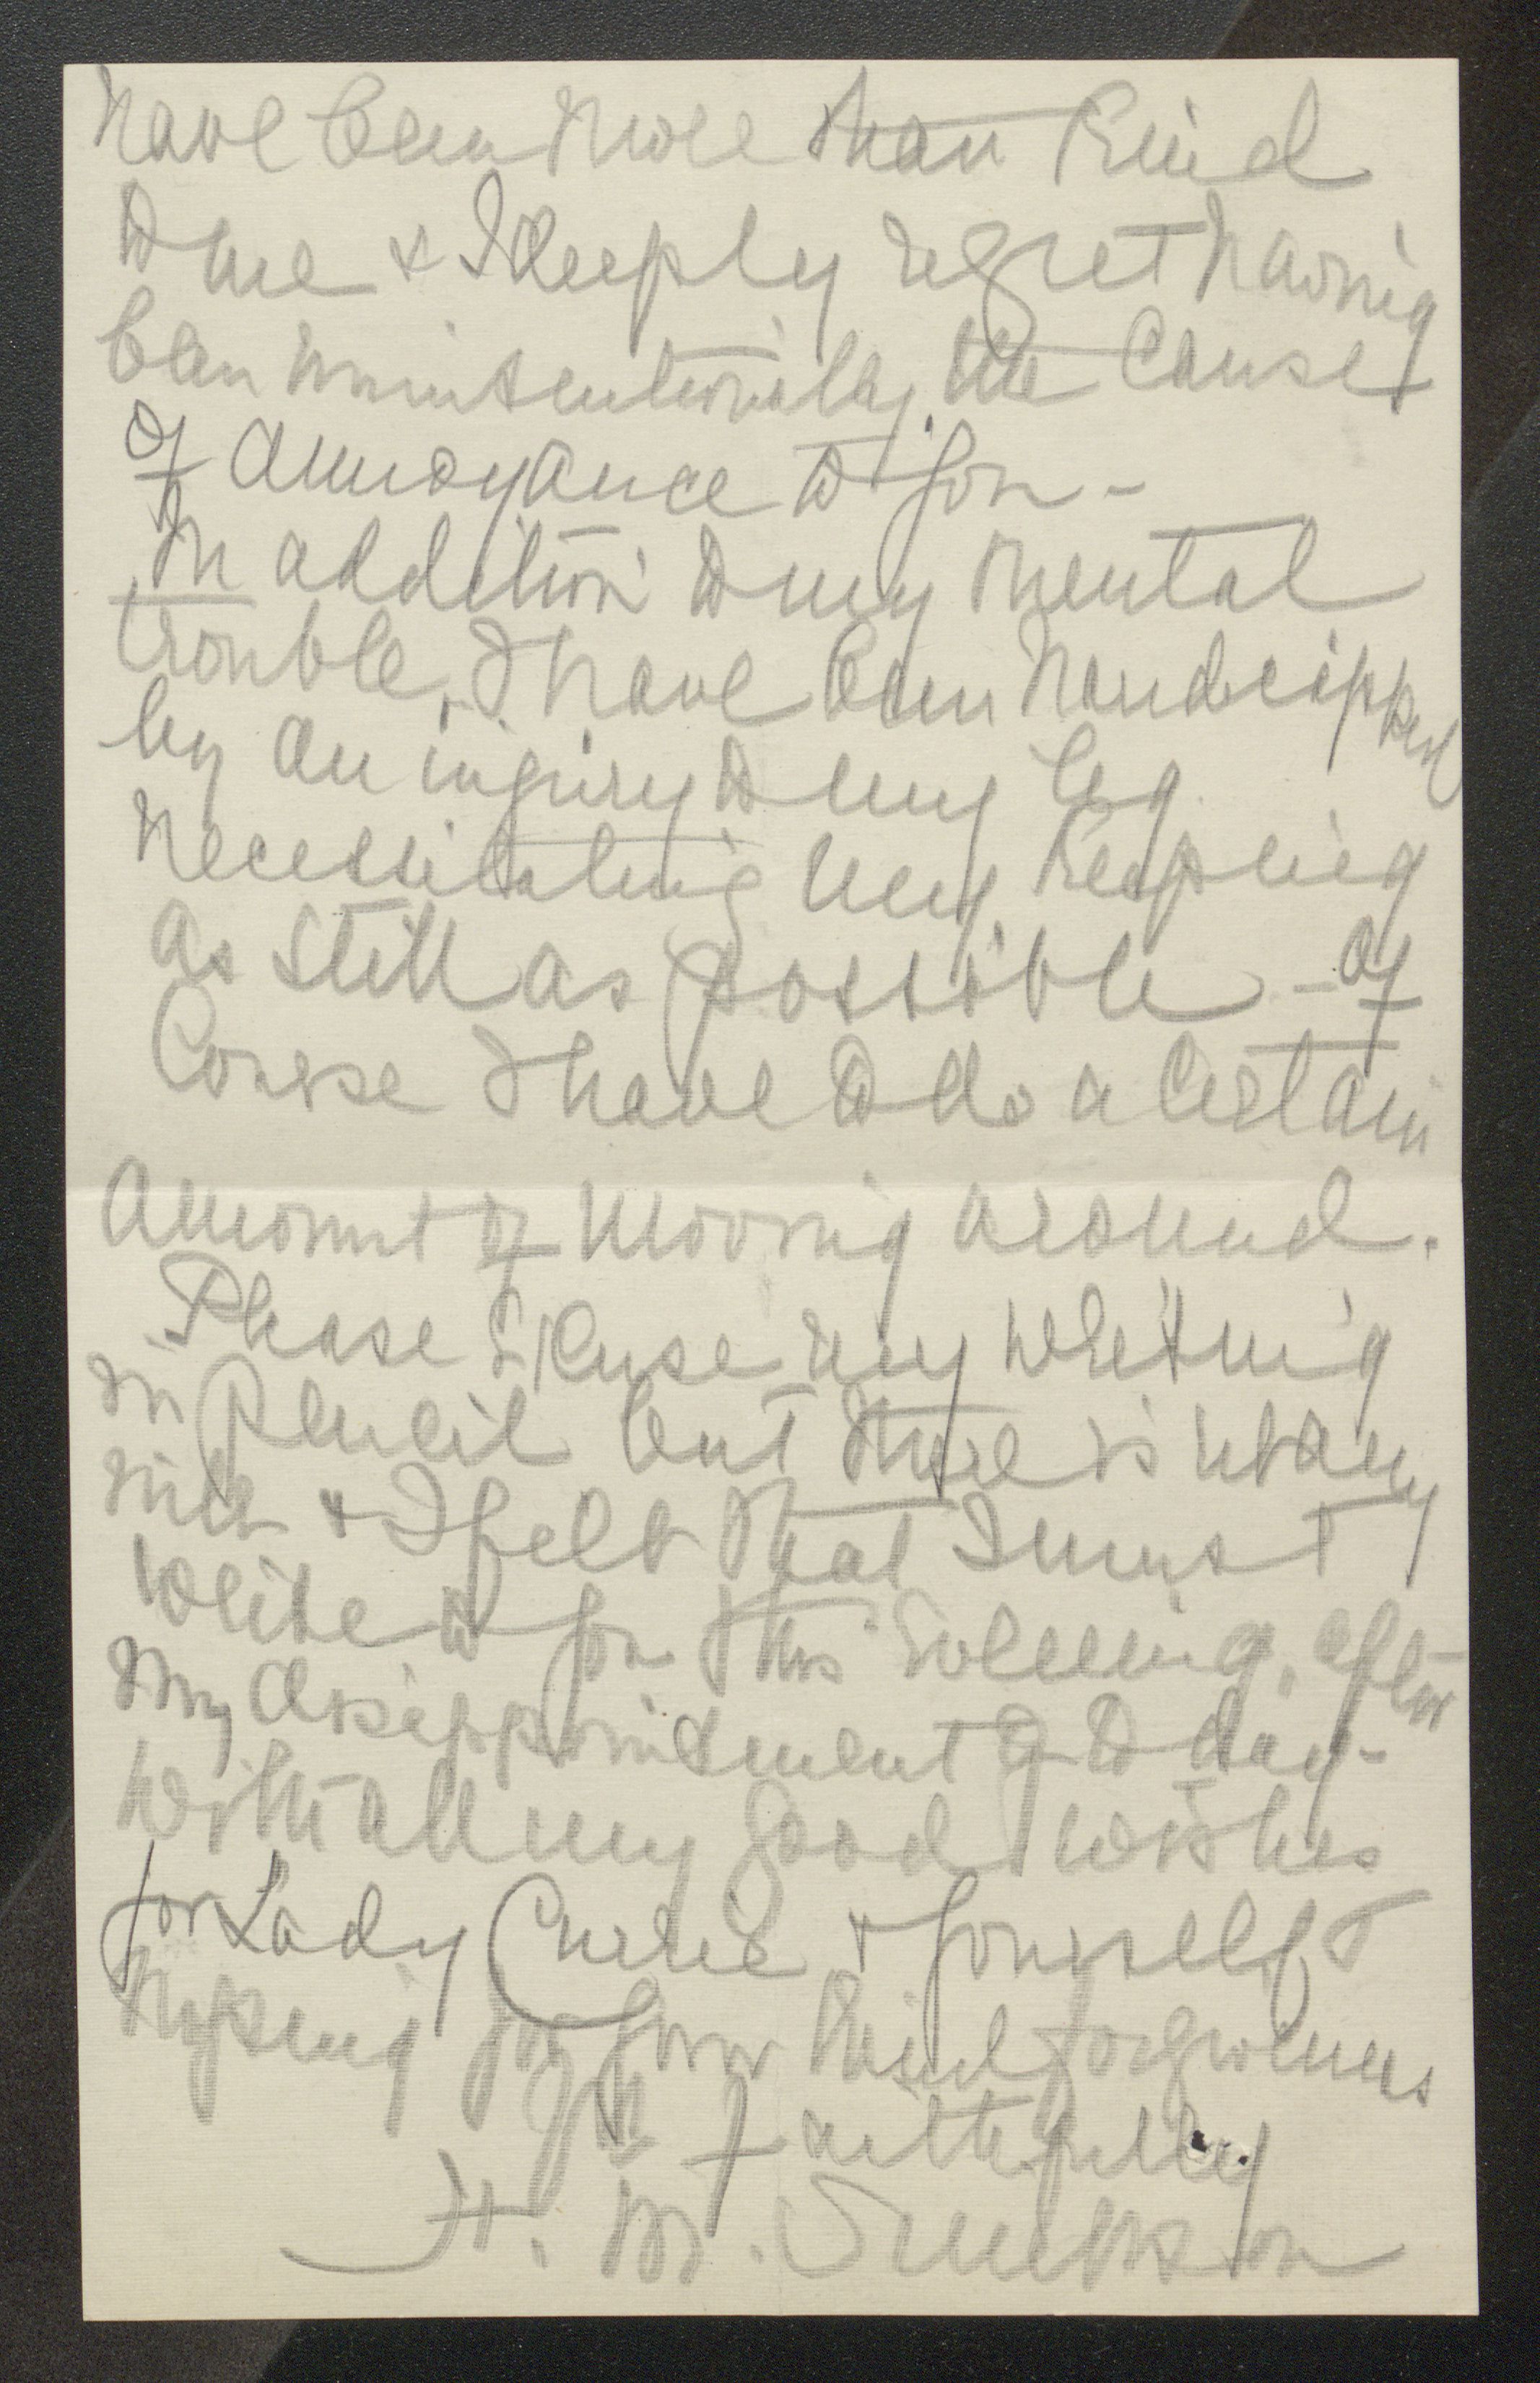 have been more than kind
to me & I deeply regret having
been unintentionally the cause
of annoyance to you -
In addition to my mental
trouble, I have been handicapped
by an injury to my leg
necessitating my keeping
as still as possible - Of
Course I have to do a certain
amount of moving around.
Please Excuse my writing
in pencil but there is not any
ink & I felt that I must
write to you this Evening, after
my disappointment of to day -
With all my good wishes
for Lady Currie & yourself &
hoping for your kind forgiveness
faithfully
H. M.